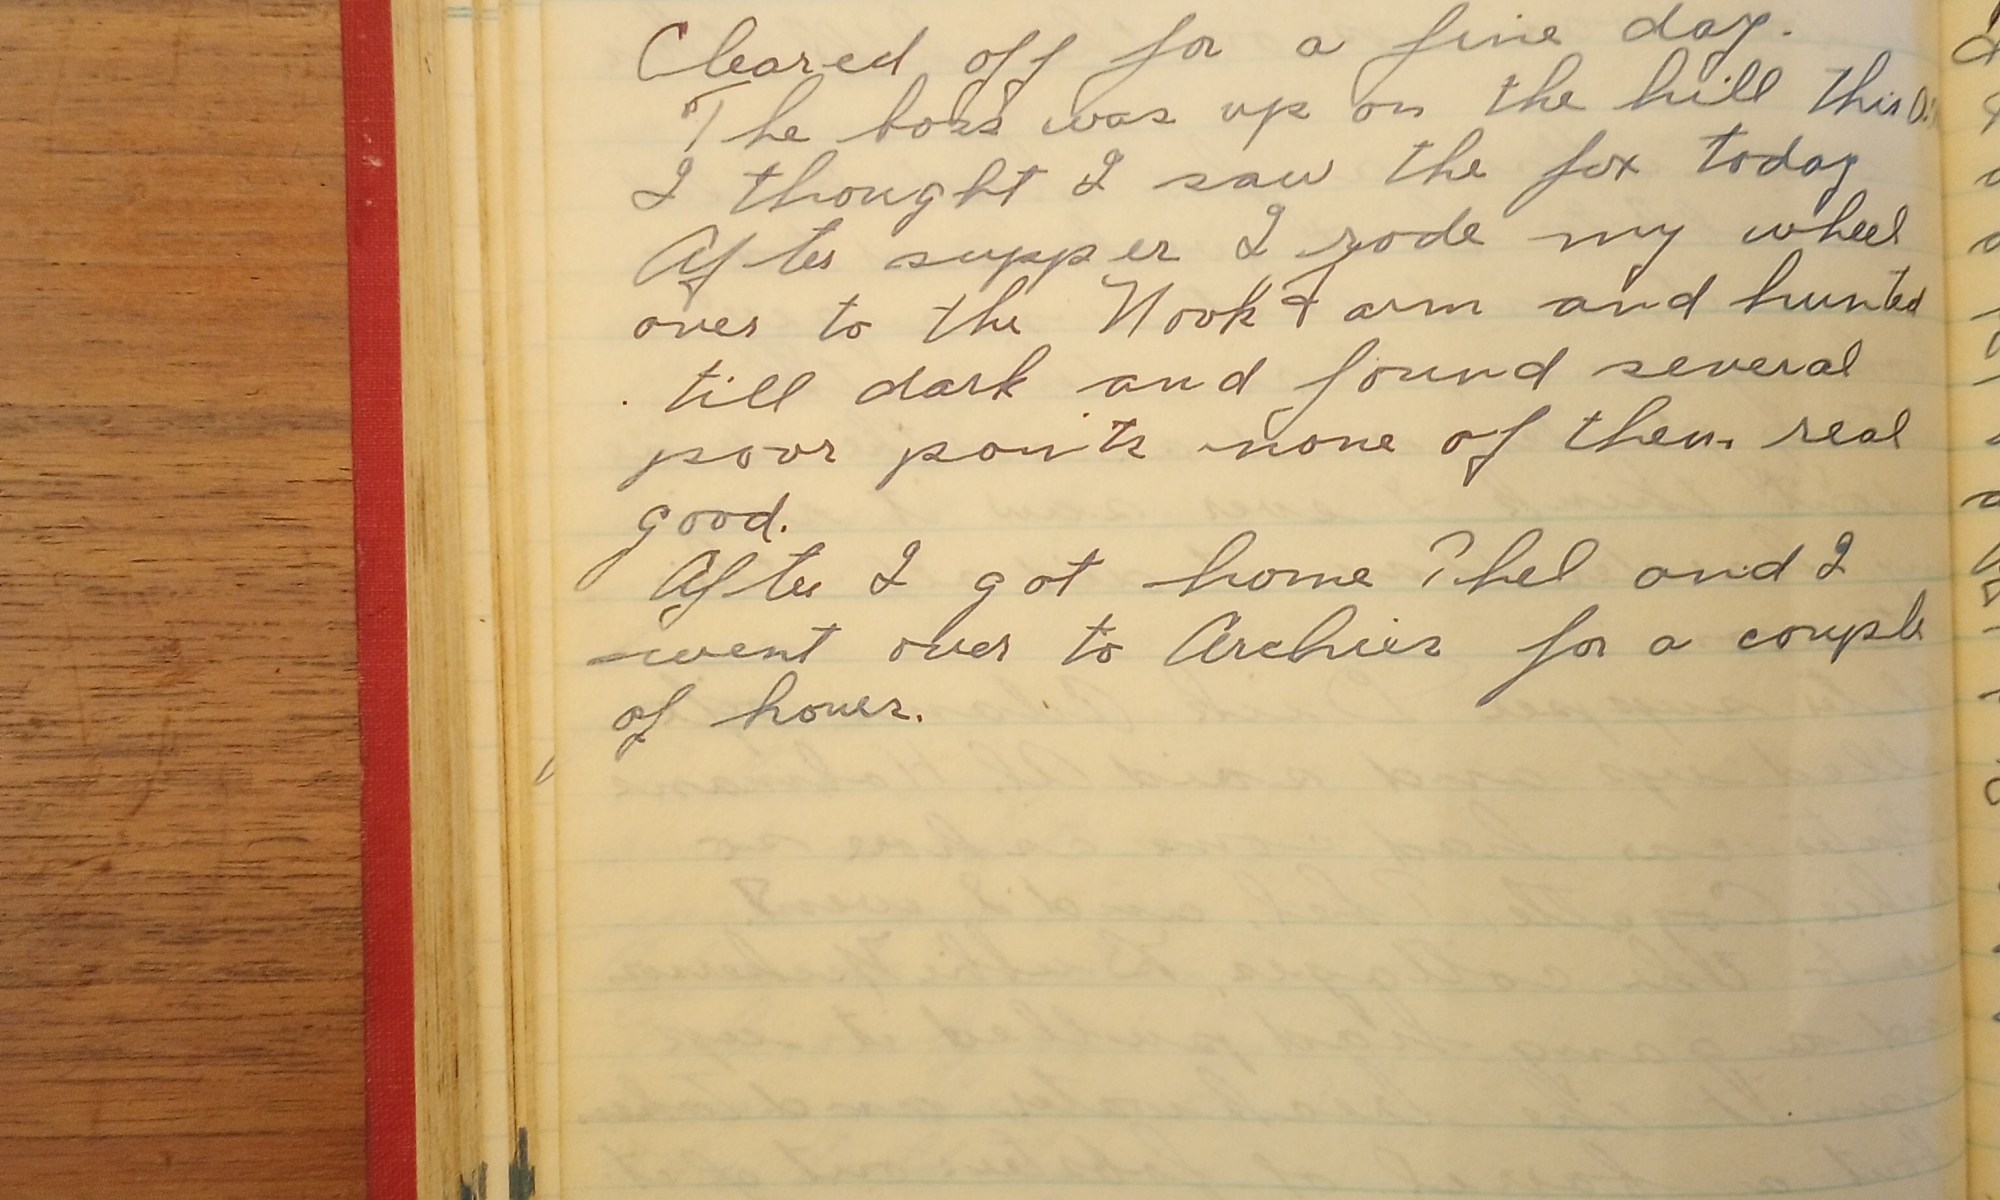 Cleared off for a fine day.
The boss was up on the hill this
I thought I saw the fox today
After supper I rode my wheel
over to the Nook Farm and hunted
till dark and found several
poor points none of them real
good.
After I got home Thel and I
went over to Archies for a couple
of hours.